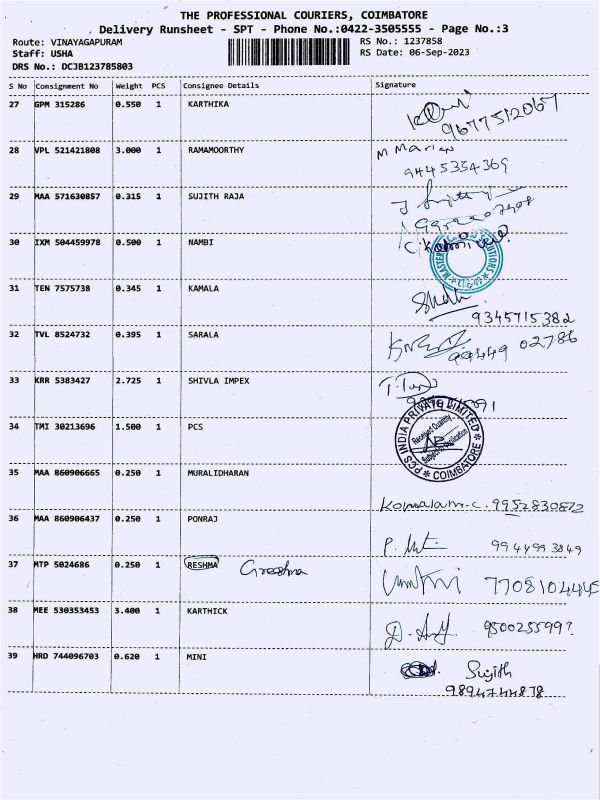 THE PROFESSIONAL COURIERS, COIMBATORE
Delivery Runsheet - SPT - Phone No.:0422-3505555 - Page No.:3
Route: VINAYAGAPURAM RS No.: 1237858
Staff: USHA RS Date: 06-Sep-2023
DRS No.: DCJB123785803
S No Consignment No Weight PCS Consignee Details Signature
27 GPM 315286 0.550 1 KARTHIKA
9677512067
28 VPL 521421808 3.000 1 RAMAMOORTHY M Marian
9445354369
29 MAA 571630857 0.315 1 SUJITH RAJA
30 IXM 504459978 0.500 1 NAMBI
31 TEN 7575738 0.345 1 KAMALA
9345715382
32 TVL 8524732 0.395 1 SARALA
99449 02786
33 KRR 5383427 2.725 1 SHIVLA IMPEX
34 TMI 30213696 1.500 1 PCS
PCS INDIA PRIVATE LIMITED
Received Quantity
Subject to Verification
COIMBATORE
35 MAA 860906665 0.250 1 MURALIDHARAN
Komalam.c. 9952830872
36 MAA 860906437 0.250 1 PONRAJ
9944993849
37 MTP 5024686 0.250 1 RESHMA Greeshma
7708104445
38 MEE 530353453 3.400 1 KARTHICK
9500255997
39 HRD 744096703 0.620 1 MINI Sujith
9894744878